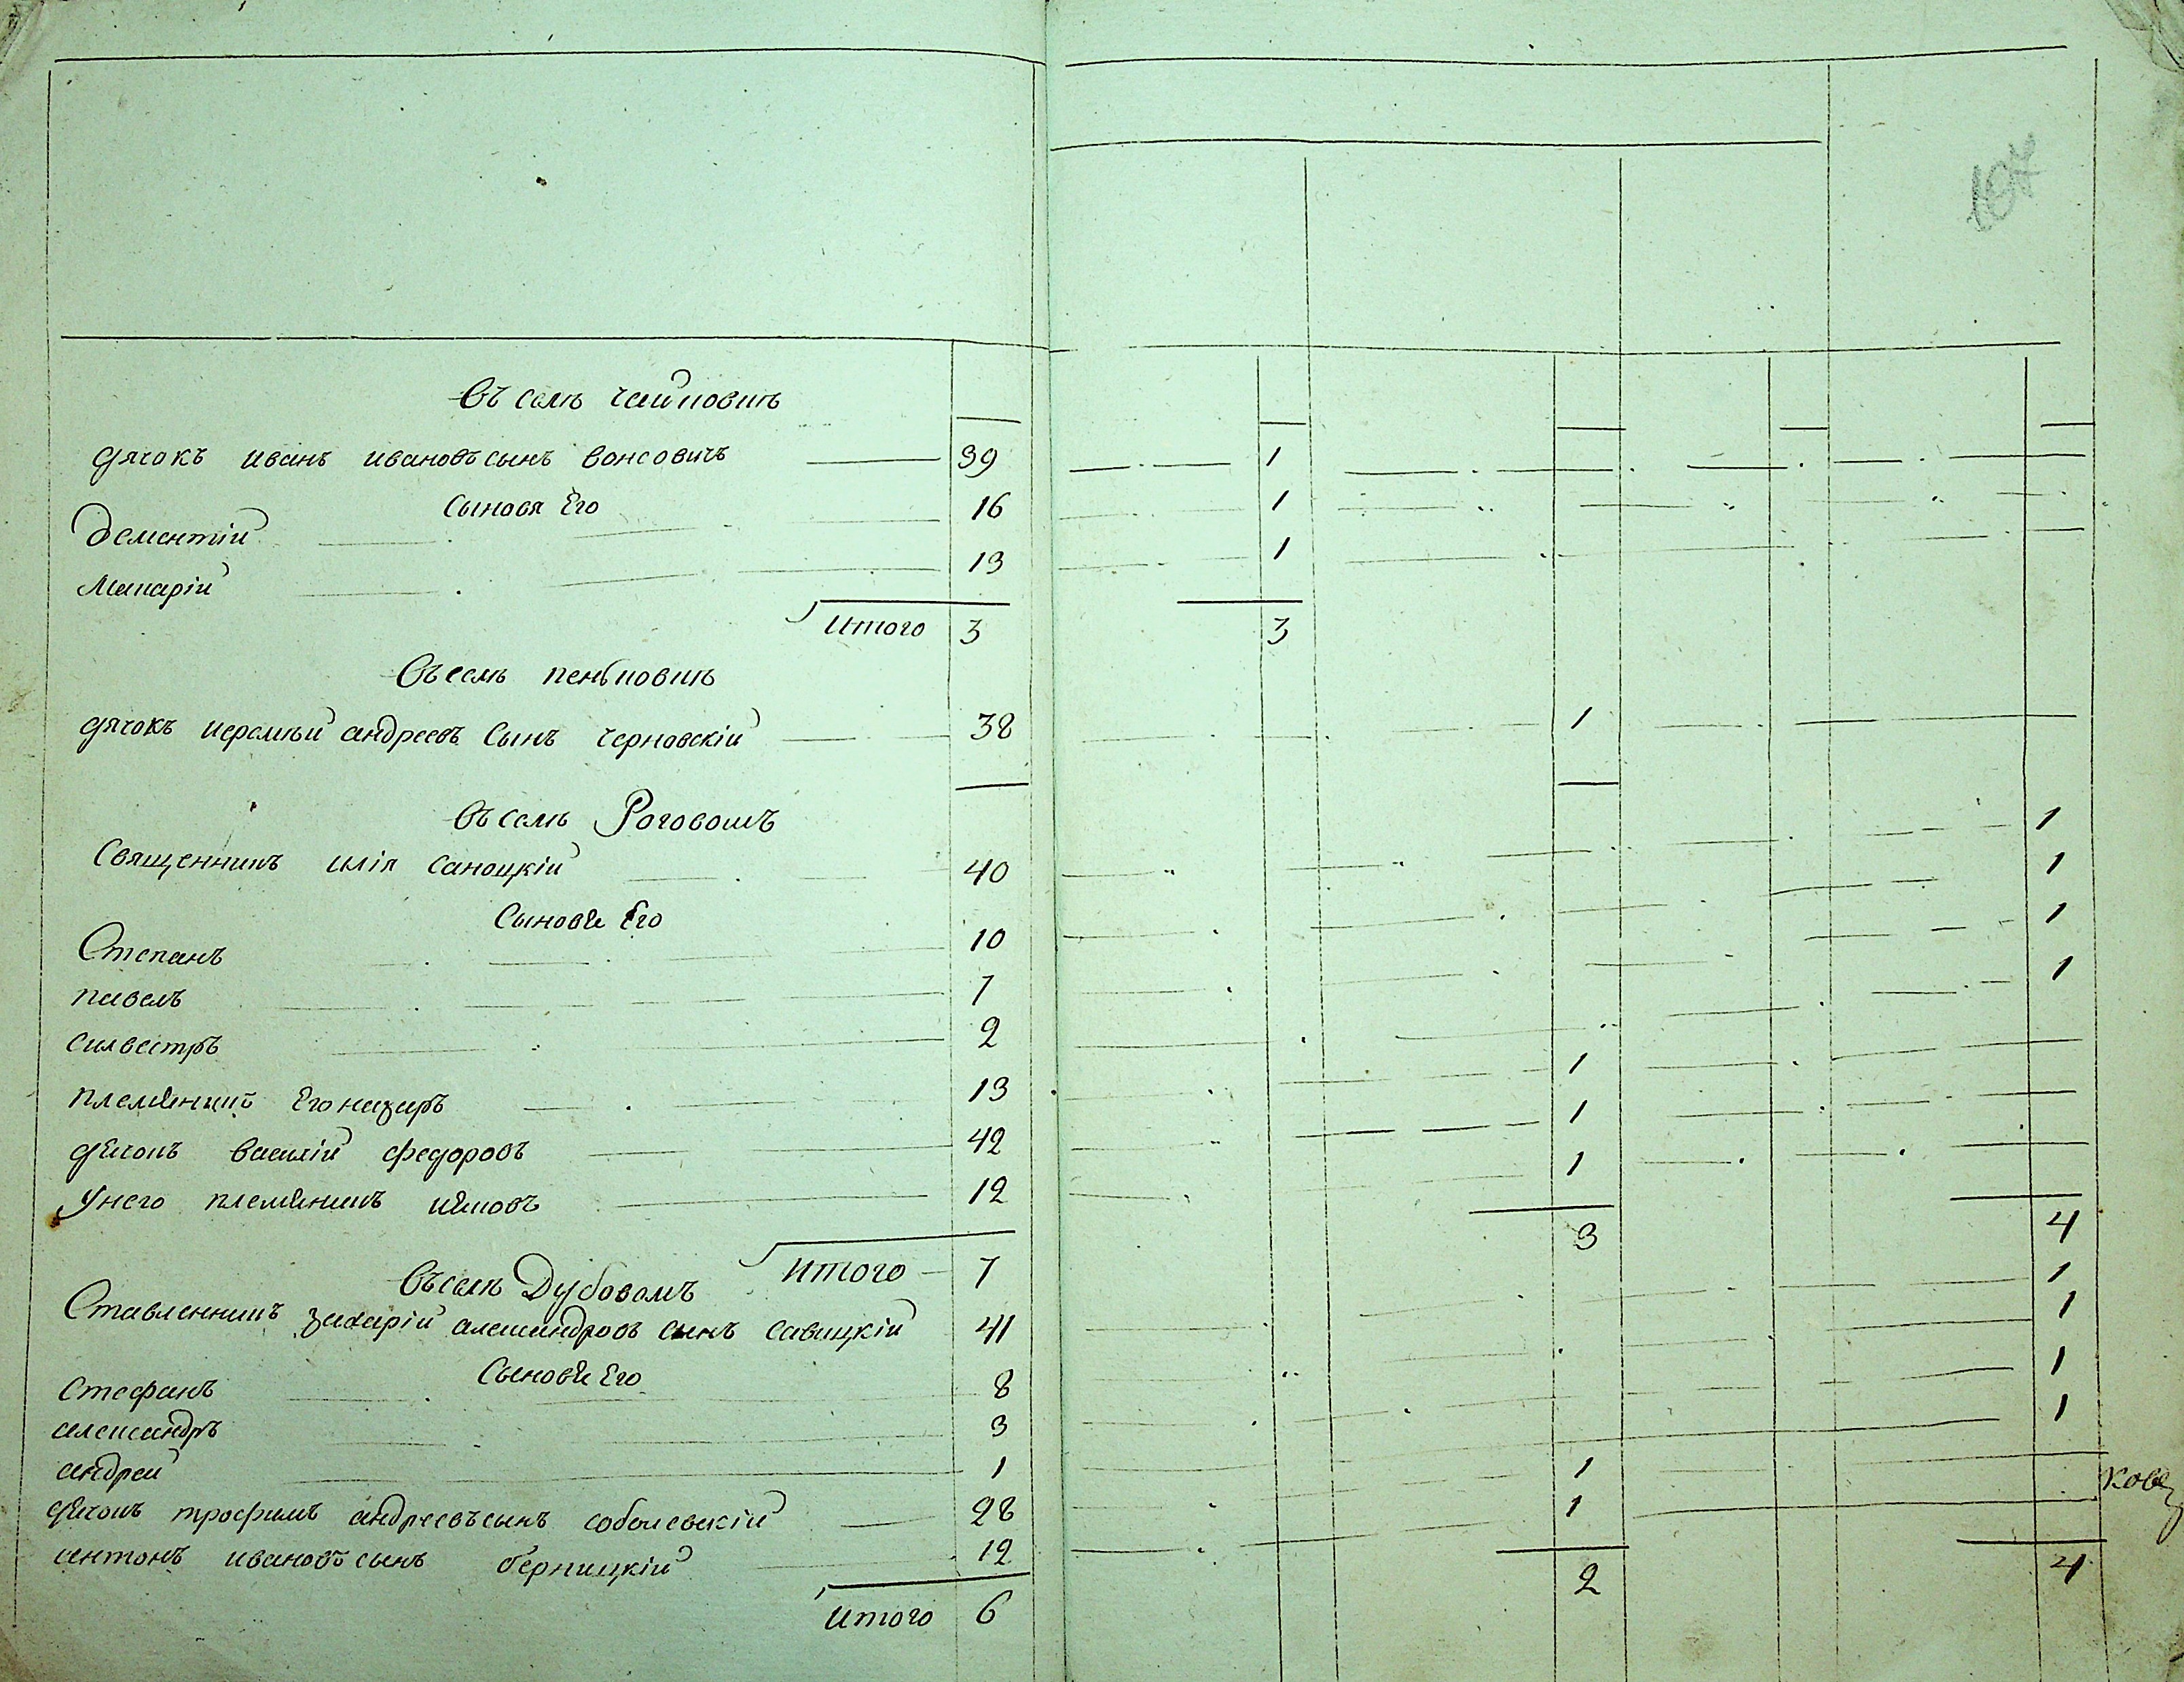 107
Въ селѣ чайковкѣ
дячокъ иванъ ивановъ сынъ вонсовичъ 39 1
Сыновя Его
Дементій 16 1
Макарій 13 1
Итого 3 3
Въ селѣ пеньковкѣ
дячокъ иеремѣй андреевъ сынъ черновскій 38 1
Въ селѣ Роговомъ
Священникъ илія саноцкій 40 1
Сыновѣя Его
Степанъ 10 1
павелъ 7 1
силвестръ 2 1
племянникъ Его назаръ 13 1
дячокъ василій федоровъ 42 1
У него племянникъ яковъ 12 1
Итого 7 3 4
Въ селѣ Дубовомъ
Ставленникъ захарій александровъ сынъ савицкій 41 1
Сыновѣя Его
стефанъ 8 1
александръ 3 1
андрей 1 1
дячокъ трофимъ андреевъ сынъ соболевскій 28 1
антонъ ивановъ сынъ берницкій 12 1
Итого 6 2 4